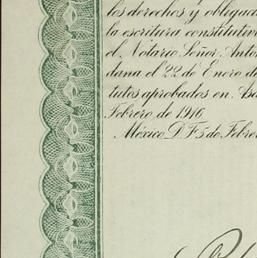 los derechos y obligac
la escritura constitutiv
el Notario Señor Anto
dana el 22 de Enero de
tutos aprobados en
Febrero de 1916.
México, D.F. 5 de Febre